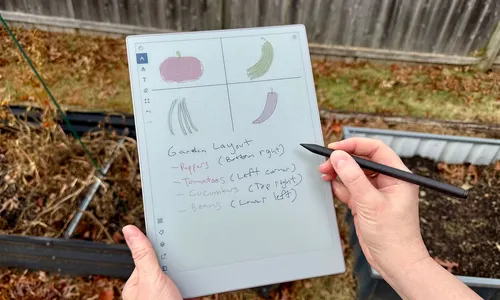 Garden Layout
- Peppers (Bottom right)
- Tomatoes (Left corner)
- Cucumbers (Top right)
- Beans (Lower left)